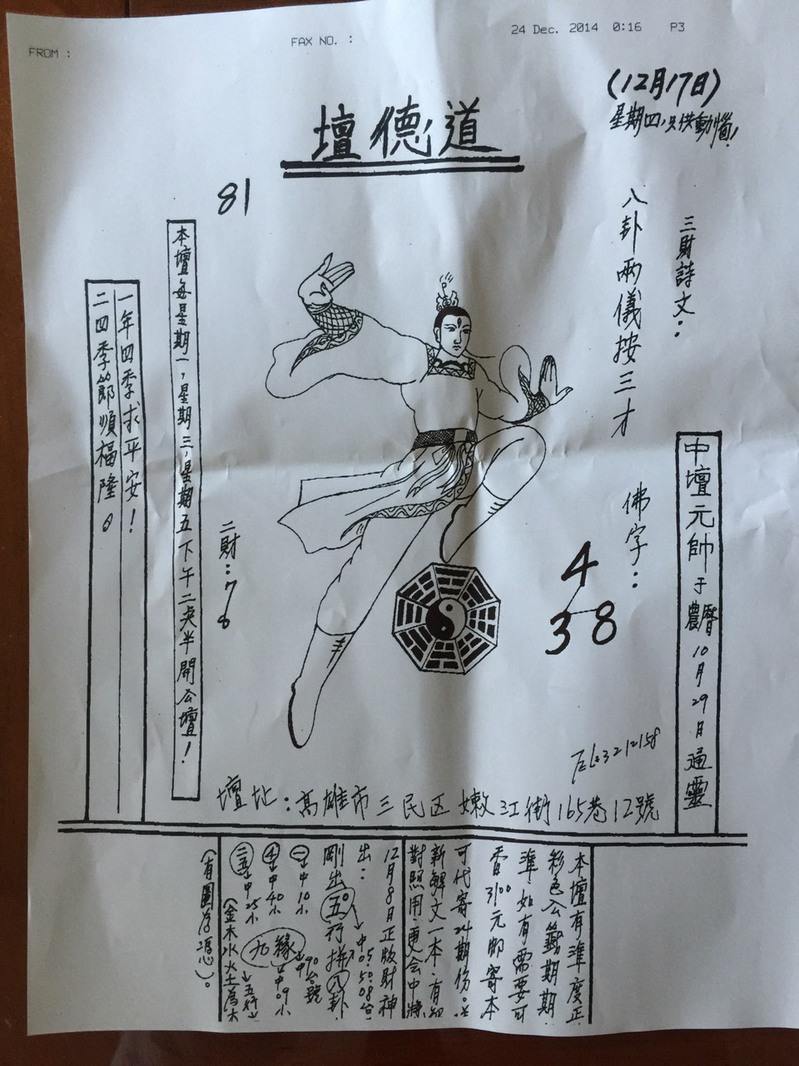 FROM :
FAX NO. :
24 Dec. 2014 0:16 P3
(12月17日)
星期四,只供動惱!
壇德道
81
三財詩文:
八卦兩儀按三才
佛字:
4
3 8
中壇元帥于農曆10月29日通靈
本壇每星期一,星期三,星期五下午二夾半開公壇!
一年四季求平安!
二四季節順福隆。
二財:78
Tel:3212158
壇址:高雄市三民区嫩江街165巷12號
本壇有準度正
彩色公籤期期
準,如有需要可
香3100元郵寄本
可代寄24期份。並
新解文一本、有細
對照用,更会中將
12月8日正版財神
出: 中05.50.08台
剛出五行拼八卦
一中10小 90台號
4中40小 九緣中09小
三五中25小 五行
(金木水火土為木
(有圖存憑)。